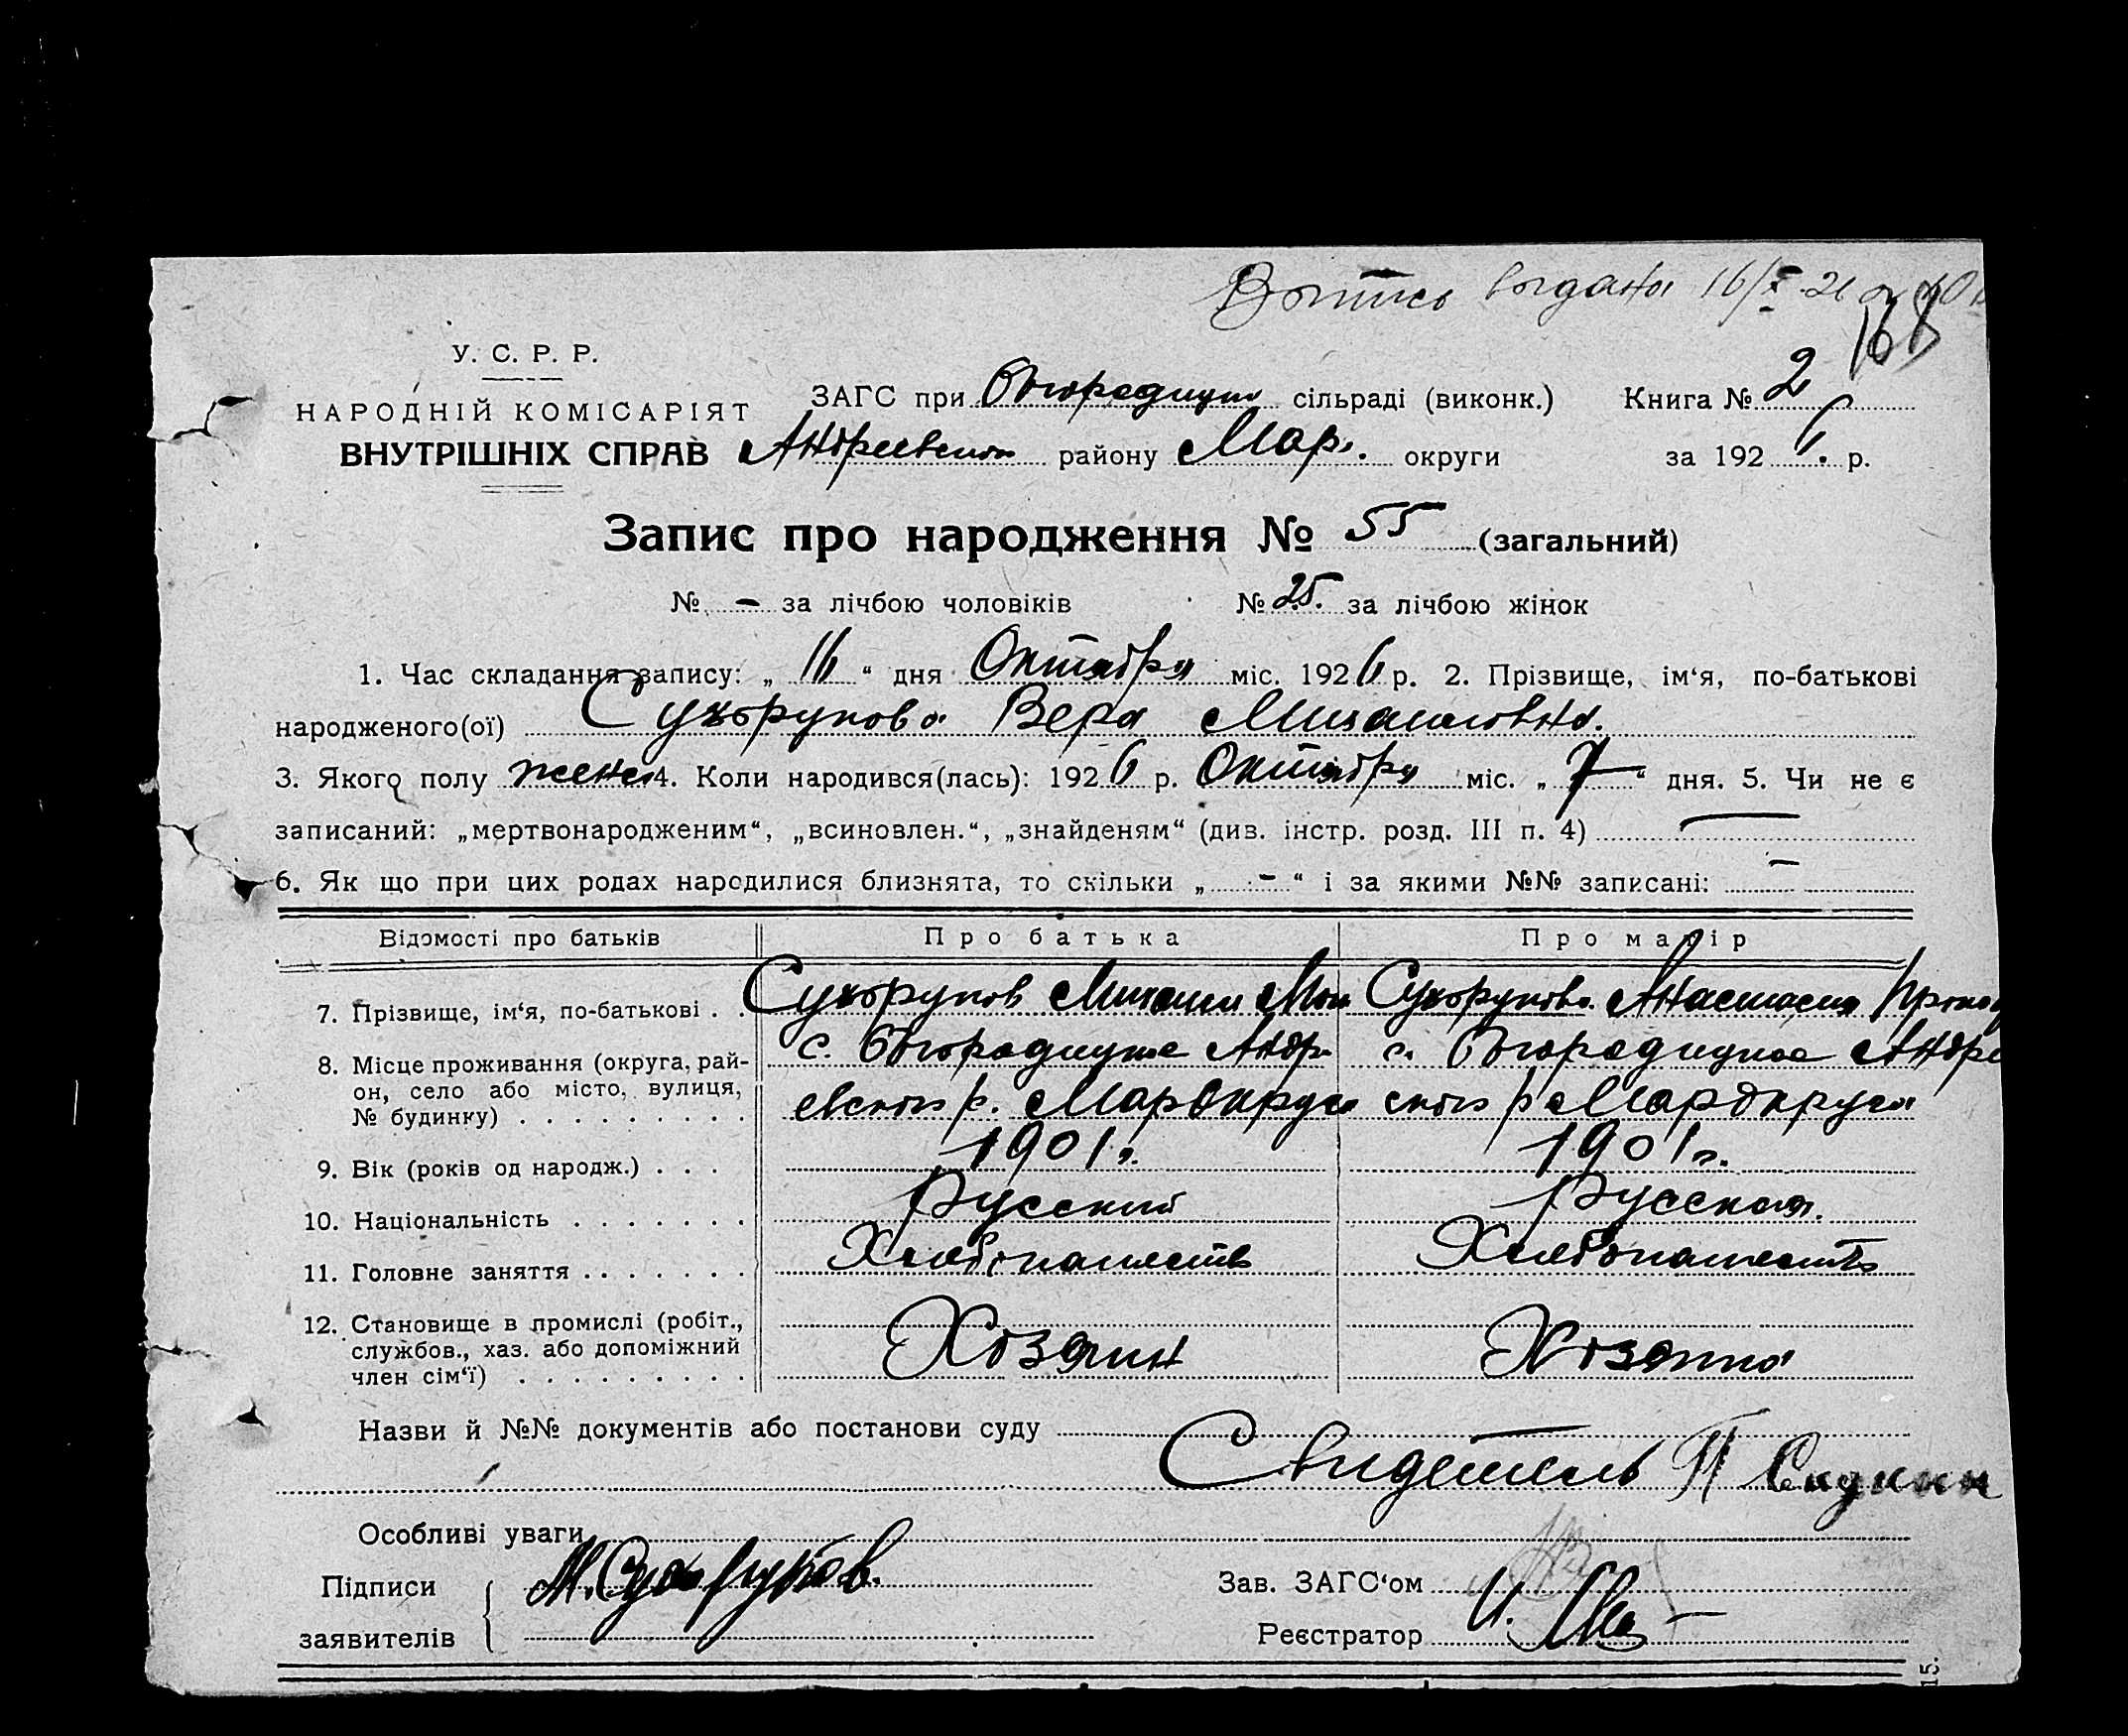 Выпись выдана 16/X-26
168
У. С. Р. Р.
НАРОДНІЙ КОМІСАРІЯТ
ВНУТРІШНІХ СПРАВ
ЗАГС при Богородицком сільраді (виконк.) Книга № 2
Андреевском району Мар. округи за 1926 р.
Запис про народження № 55 (загальний)
№ - за лічбою чоловіків № 25. за лічбою жінок
1. Час складання запису: „ 16 “ дня Октября міс. 1926 р. 2. Прізвище, ім‘я, по-батькові
народженого(ої) Сухорукова Вера Михайловна.
3. Якого полу женс 4. Коли народився(лась): 1926 р. Октября міс. „ 7 “ дня. 5. Чи не є
записаний: „мертвонародженим“, „всиновлен.“, „знайденям“ (див. інстр. розд. III п. 4) —
6. Як що при цих родах народилися близнята, то скільки „ - “ і за якими №№ записані: —
Відомості про батьків Про батька Про матір
7. Прізвище, ім‘я, по-батькові . . Сухоруков Михаил Сухорукова Анастасия
8. Місце проживання (округа, рай- с. Богородицкое Андре с. Богородицкое Андре
он, село або місто, вулиця, евского р. Мар округа ского р Мар округа
№ будинку) . . . . . . . . .
9. Вік (років од народж.) . . . 1901 г. 1901 г.
10. Національність . . . . . . . Русский Русская.
11. Головне заняття . . . . . . . Хлебопашеств Хлебопашеств
12. Становище в промислі (робіт.,
службов., хаз. або допоміжний Хозяин Хозяйка
член сім‘ї) . . . . . . . . .
Назви й №№ документів або постанови суду
Свидетель П
Особливі уваги
Підписи М. Сухоруков. Зав. ЗАГС‘ом
заявителів Реєстратор И.
15.